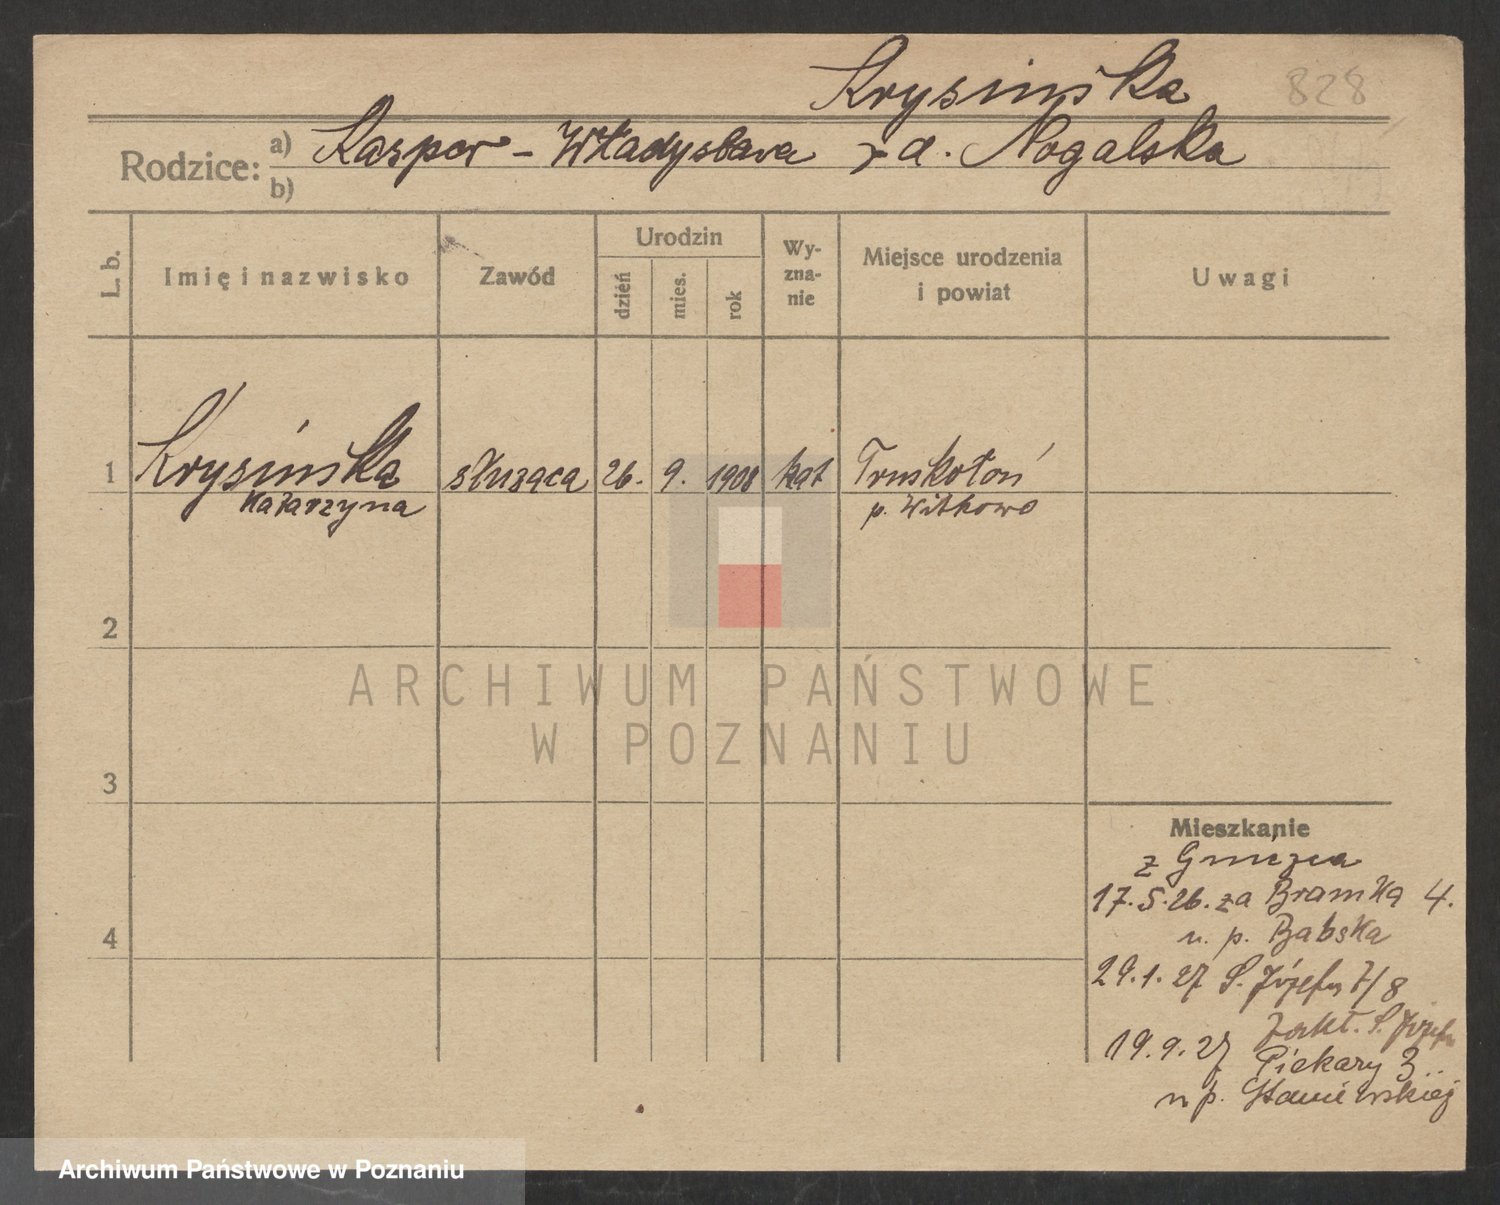 Krysińska 828
Rodzice: a) Kasper - Władysława z d. Nogalska
b)
L. b. Imię i nazwisko Zawód Urodzin dzień mies. rok Wy-zna-nie Miejsce urodzenia i powiat Uwagi
1 Krysińska służąca 26. 9. 1908 kat Truskołoń
Katarzyna p. Witkowo
2
3
4
Mieszkanie
z Gniezna
17.5.26. za Bramką 4.
u. p. Babska
29.1.27 Ś. Józefa 7/8
Zakł. Ś. Józefa
19.9.27 Piekary 3
u p.
ARCHIWUM PAŃSTWOWE
W POZNANIU
Archiwum Państwowe w Poznaniu